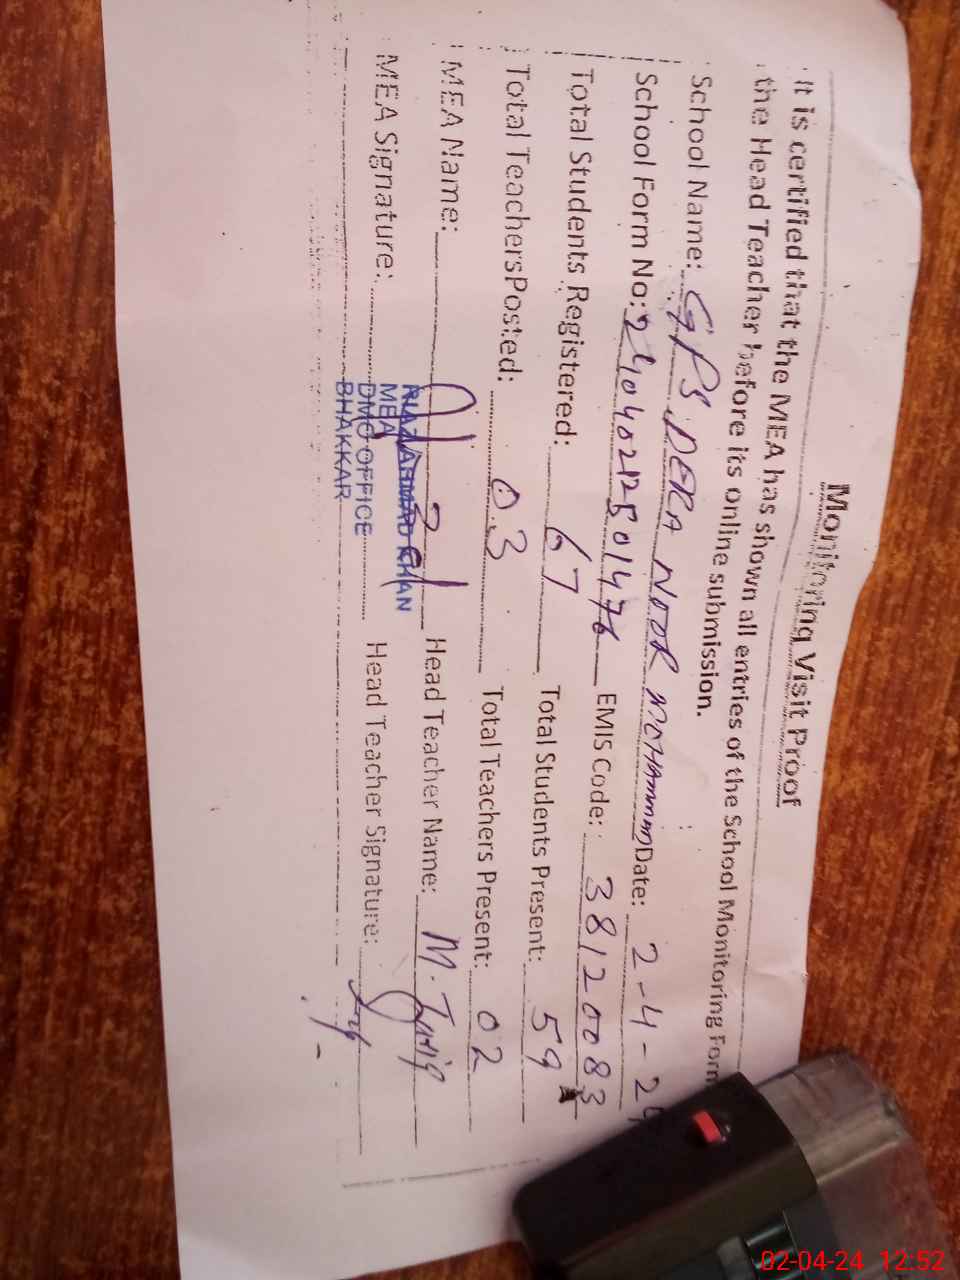 Monitoring Visit Proof
It is certified that the MEA has shown all entries of the School Monitoring Form
the Head Teacher before its online submission.
School Name: GPS DERA NOOR MOHAMMAD Date: 2-4-24
School Form No: EMIS Code: 38120083
Total Students Registered: 67 Total Students Present: 59
Total Teachers Posted: 03 Total Teachers Present: 02
MEA Name: Head Teacher Name: M.
MEA Signature: Head Teacher Signature:
RIAZ AHMAD KHAN
MEA
DMO OFFICE
BHAKKAR
02-04-24 12:52